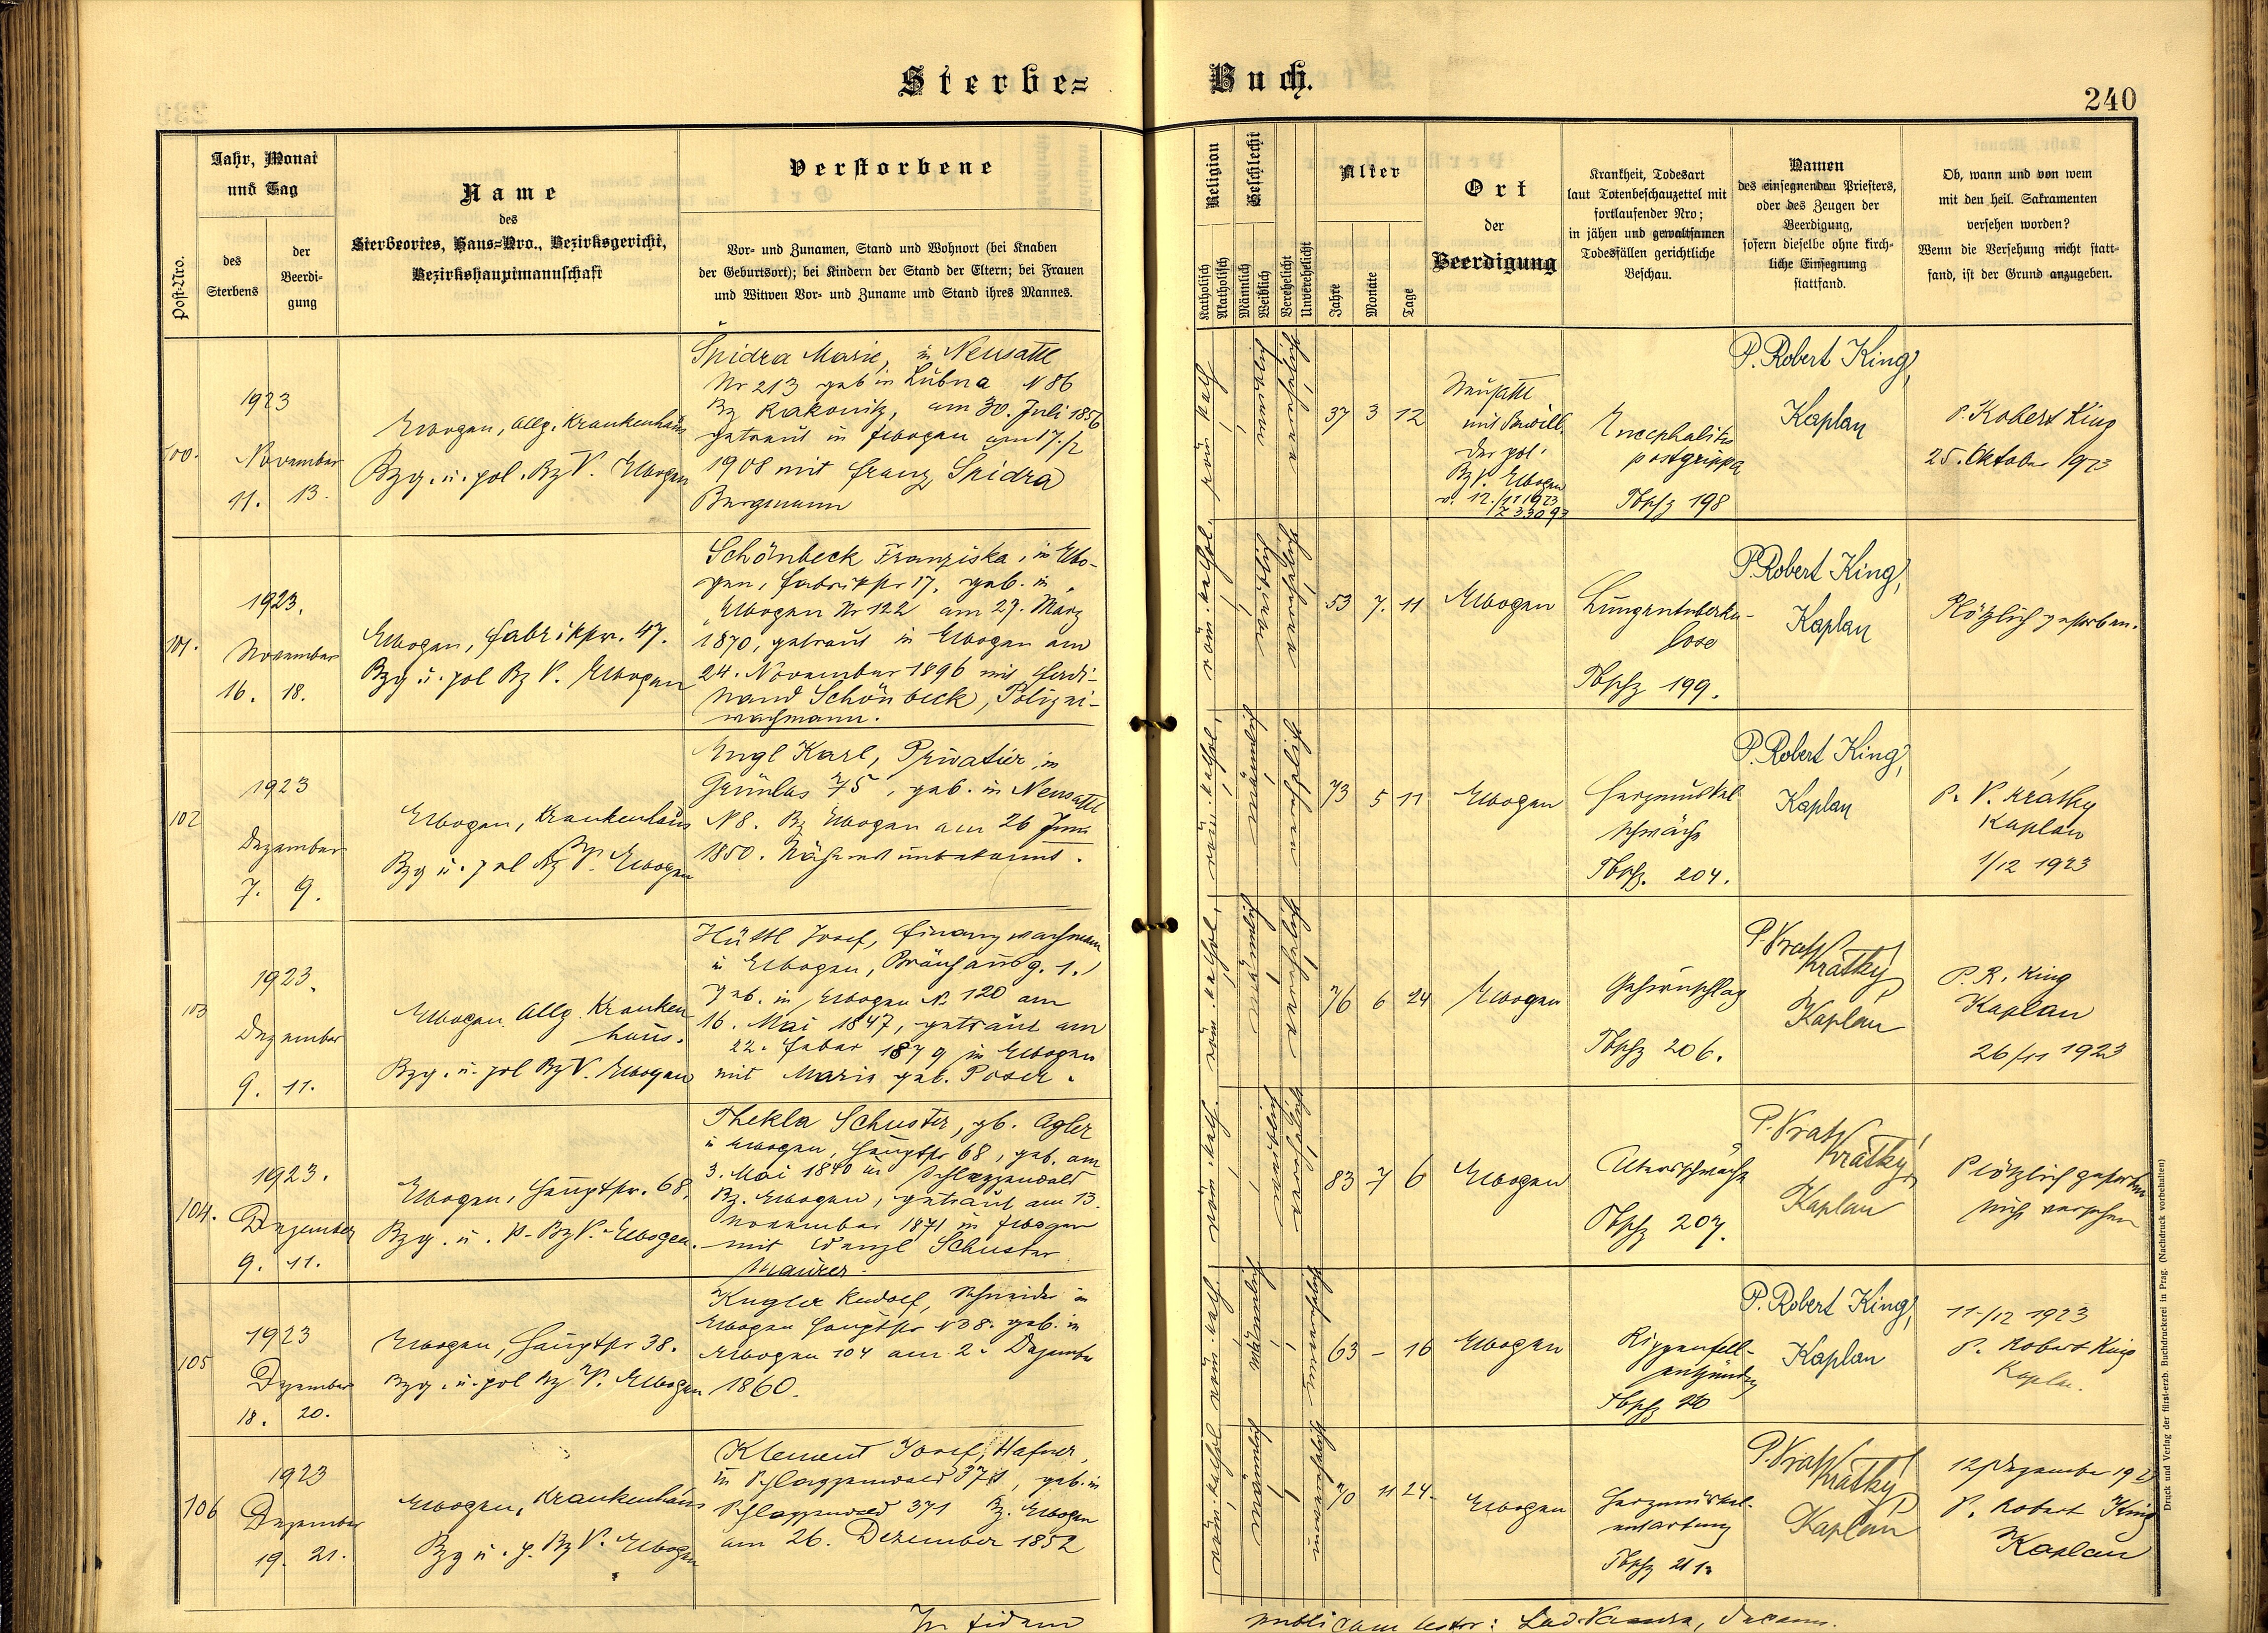 Sterbe=
Buch.
240
Post-Nro.
Jahr, Monat
und Tag
des
Sterbens
der
Beerdi-
gung
Name
des
Sterbeortes, Haus=Nro., Bezirksgericht,
Bezirkshauptmannschaft
Verstorbene
Vor= und Zunamen, Stand und Wohnort (bei Knaben
der Geburtsort); bei Kindern der Stand der Eltern; bei Frauen
und Witwen Vor= und Zuname und Stand ihres Mannes.
Religion
Katholisch
Akatholisch
Geschlecht
Männlich
Weiblich
Verehelicht
Unverehelicht
Alter
Jahre
Monate
Tage
Ort
der
Beerdigung
Krankheit, Todesart
laut Totenbeschauzettel mit
fortlaufender Nro;
in jähen und gewaltsamen
Todesfällen gerichtliche
Beschau.
Namen
des einsegnenden Priesters,
oder des Zeugen der
Beerdigung,
sofern dieselbe ohne kirch-
liche Einsegnung
stattfand.
Ob, wann und von wem
mit den heil. Sakramenten
versehen worden?
Wenn die Versehung nicht statt-
fand, ist der Grund anzugeben.
100.
1923
November
11. 13.
Elbogen, allg. Krankenhaus
Bzg. u. pol. Bz V. Elbogen
Spidra Marie, in Neusattl
Nr 213 geb in Lubna N 86
Bz Rakonitz, am 30. Juli 1856
getraut in Elbogen am 17./2
1908 mit Franz Spidra
Bergmann
röm. kath.
weiblich
verehelicht
37 3 12
Neusattl
mit Bewill.
der pol.
Bz V. Elbogen
v. 12./11 1923
Z 33093
Encephalitis
postgrippa
Tbschz 198
P. Robert King,
Kaplan
P. Robert King
25. Oktober 1923
101.
1923.
November
16. 18.
Elbogen, Fabrikstr. 47.
Bzg u. pol Bz V. Elbogen
Schönbeck Franziska, in Elbo-
gen, Fabrikstr 17, geb. in
Elbogen Nr 122 am 27. März
1870, getraut in Elbogen am
24. November 1896 mit Ferdi-
nand Schönbeck, Polizei-
wachmann.
röm. kathol.
weiblich
verehelicht
53 7. 11
Elbogen
Lungentuberku-
lose
Tbschz 199.
P. Robert King,
Kaplan
Plötzlich gestorben.
102
1923
Dezember
7. 9.
Elbogen, Krankenhaus
Bzg u. pol Bz V. Elbogen
Engl Karl, Privatier, in
Grünlas 75, geb. in Neusattl
N 8. Bz Elbogen am 26 Juni
1850. Näheres unbekannt.
röm. kathol.
männlich
73 5 11
Elbogen
Herzmuskel
schwäche
Tbschz. 204.
P. Robert King,
Kaplan
P. V. Krátký
Kaplan
1/12 1923
103
1923.
Dezember
9. 11.
Elbogen allg. Kranken
haus.
Bzg. u. pol Bz V. Elbogen
Hüttl Josef, Finanzwachmann
in Elbogen, Bräuhausg. 1.
geb. in Elbogen N. 120 am
16. Mai 1847, getraut am
22. Feber 1879 in Elbogen
mit Marie geb. Poser.
röm. kathol.
männlich
verehelicht
76 6 24
Elbogen
Gehirnschlag
Tbschz 206.
P. Vrat Krátký
Kaplan
P. R. King
Kaplan
26/11 1923
104.
1923.
Dezember
9. 11.
Elbogen, Hauptstr. 68,
Bzg. u. p. Bz V. Elbogen.
Thekla Schuster, gb. Agler
in Elbogen, Hauptstr 68, geb. am
3. Mai 1840 in Schlaggenwald
Bz. Elbogen, getraut am 13.
November 1871 in Elbogen
mit Wenzl Schuster
Maurer.
röm. kath.
weiblich
verehelicht
83 7 6
Elbogen
Altersschwäche
Tbschz 207.
P. Vrat Krátký,
Kaplan
Plötzlich gestorben
nicht versehen
105
1923
Dezember
18. 20.
Elbogen, Hauptstr 38.
Bzg. u. pol Bz V. Elbogen
Kugler Rudolf, Schneider in
Elbogen Hauptstr N 38. geb. in
Elbogen 104 am 2. Dezember
1860.
röm. kath.
männlich
unverehelicht
63 – 16
Elbogen
Rippenfell-
entzündung
P. Robert King,
Kaplan
11/12 1923
P. Robert King
Kaplan.
106
1923
Dezember
19. 21.
Elbogen, Krankenhaus
Bzg u. p. Bz V. Elbogen
Klement Josef, Hafner,
in Schlaggenwald 371, geb. in
Schlaggenwald 371 Bz. Elbogen
am 26. Dezember 1852
röm. kathol
männlich
unverehelicht
70 11 24.
Elbogen
Herzmuskel-
entartung
Tbschz 211.
P. Vrat Krátký
Kaplan
12 Dezember 192
P. Robert King
Kaplan
In fidem
publicam testor:
Druck und Verlag der fürst-erzb. Buchdruckerei in Prag. (Nachdruck vorbehalten)